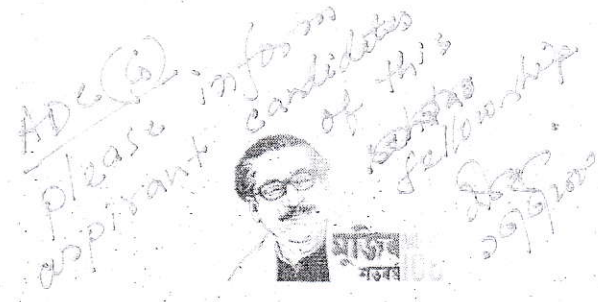 ADC (G)
please inform
aspirant candidates
of this
fellowship
মুজিব
শতবর্ষ 100